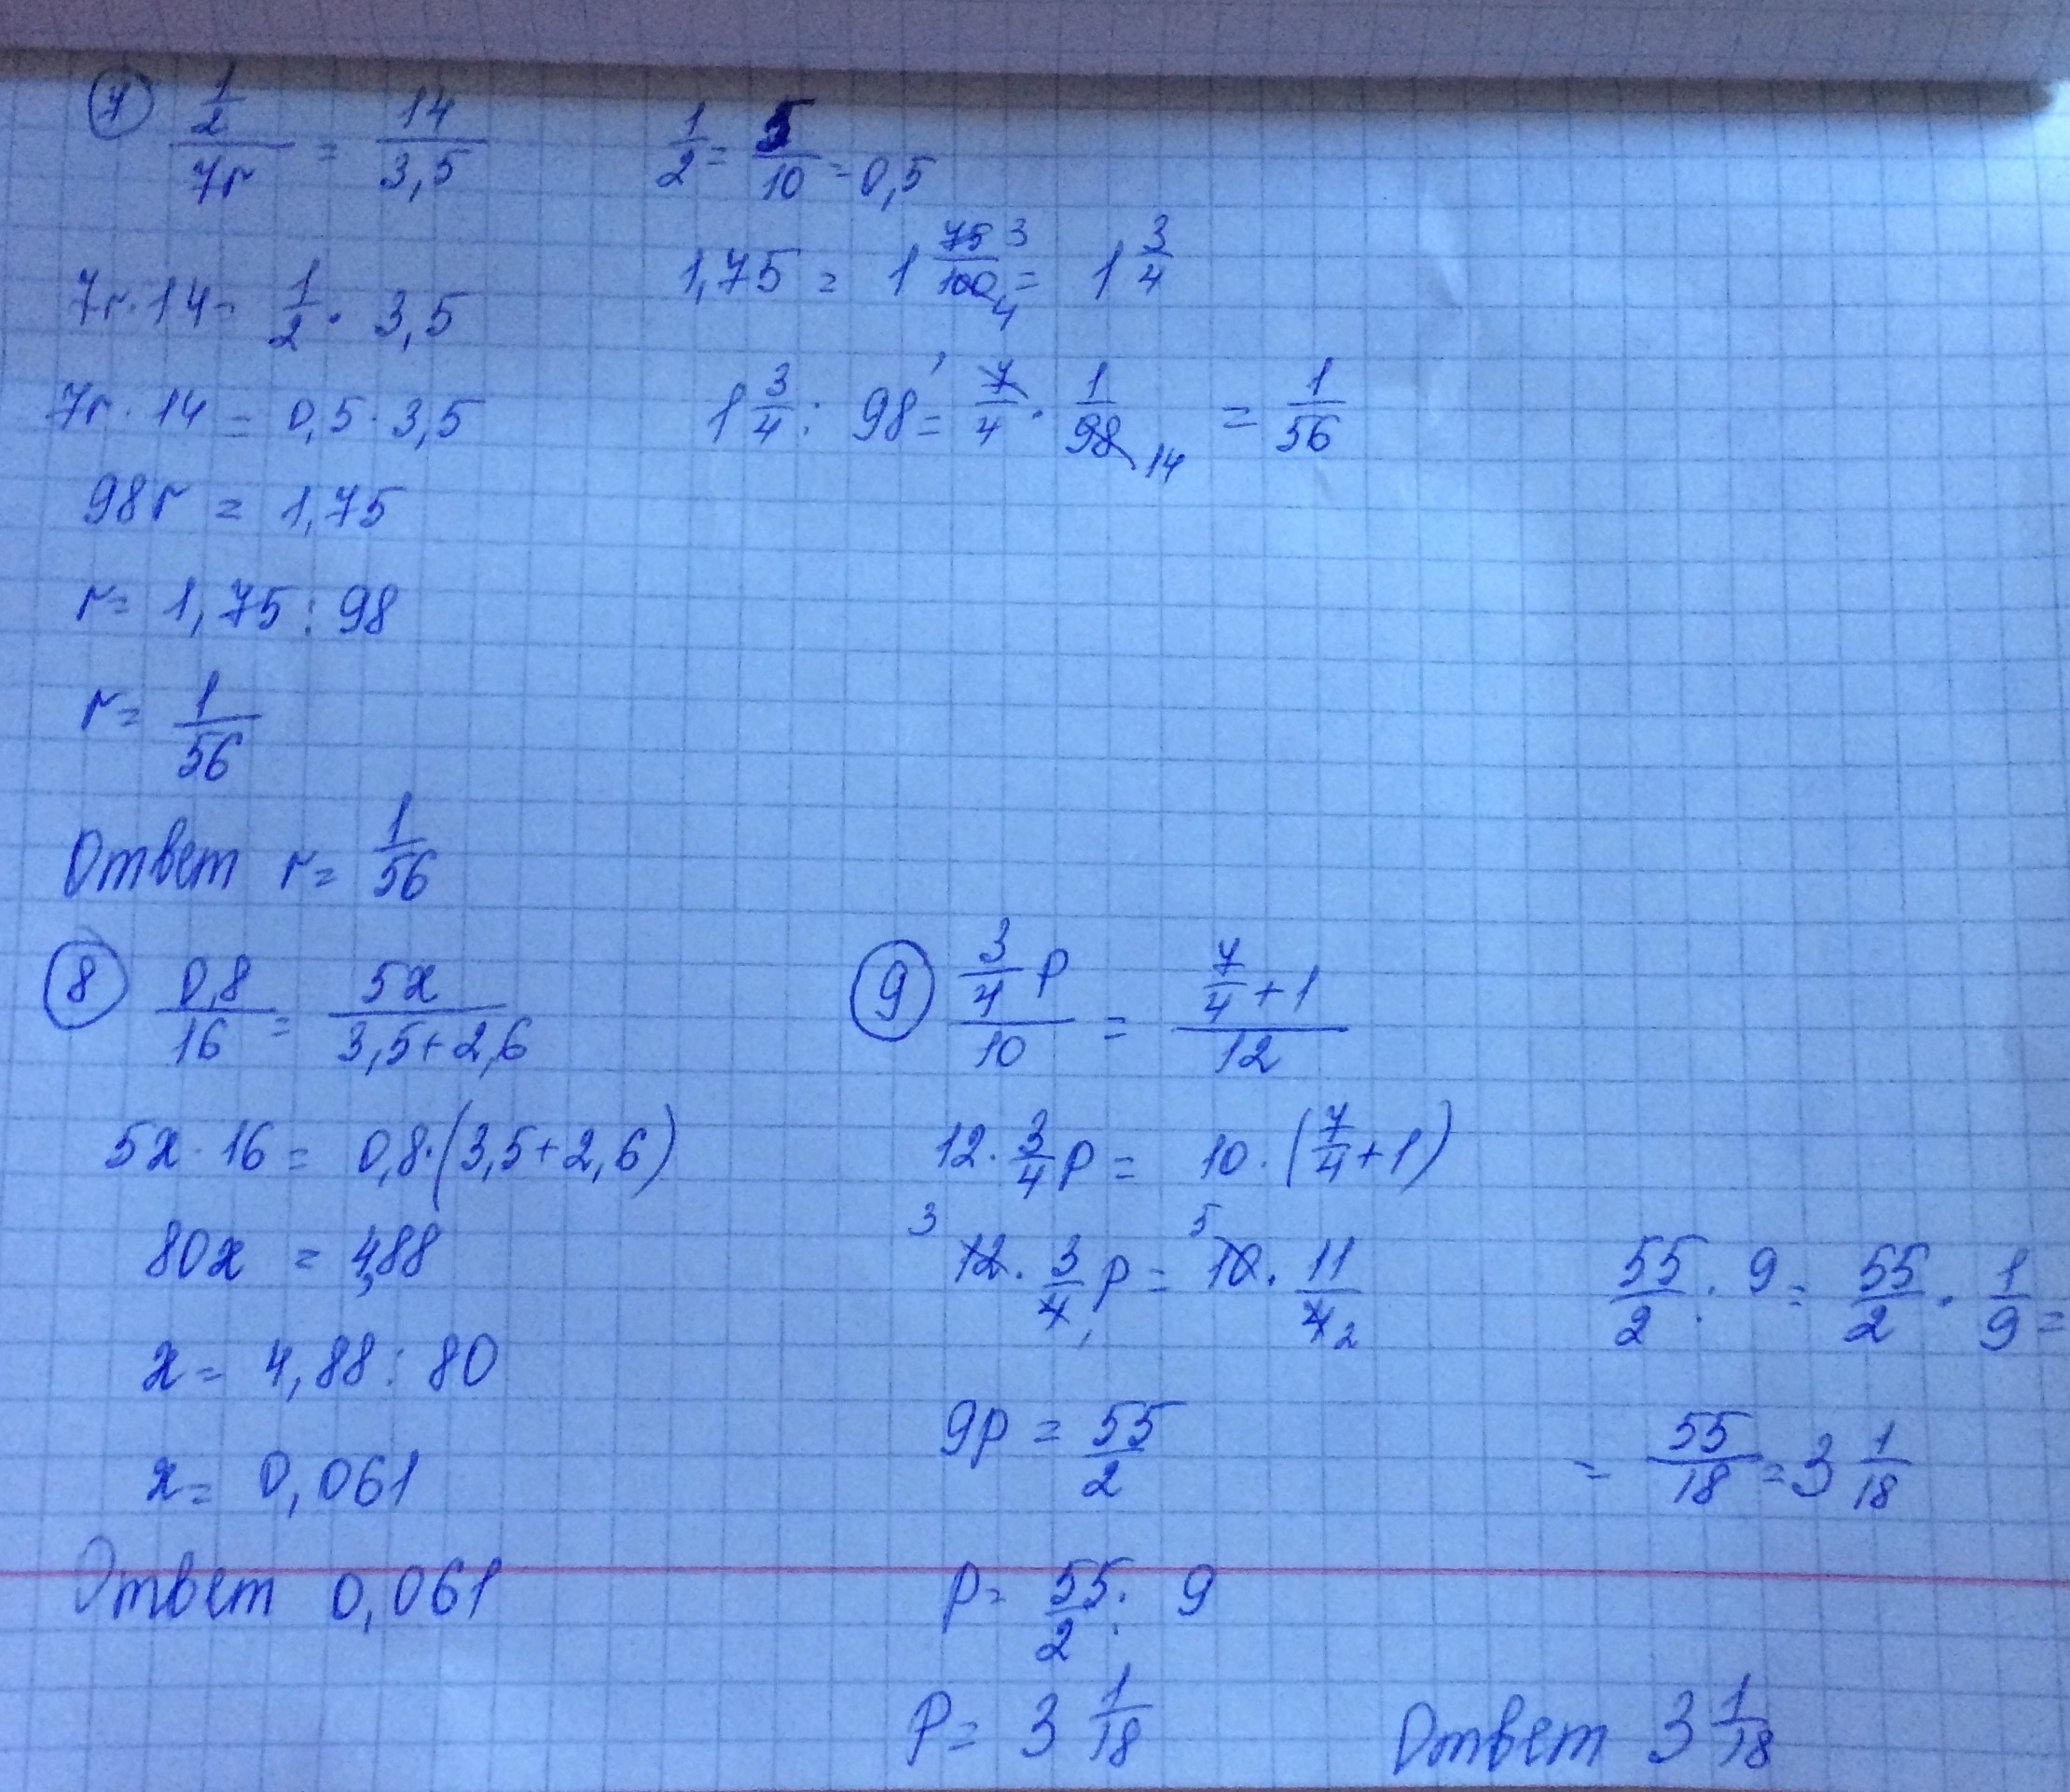 ⑦ (1/2)/(7r) = 14/3,5
1/2 = 5/10 = 0,5
7r · 14 = 1/2 · 3,5
1,75 = 1 75/100 = 1 3/4
7r · 14 = 0,5 · 3,5
1 3/4 : 98 = 7/4 · 1/98 = 1/56
98r = 1,75
r = 1,75 : 98
r = 1/56
Ответ r = 1/56
⑧ 0,8/16 = 5x/(3,5+2,6)
5x · 16 = 0,8 · (3,5+2,6)
80x = 4,88
x = 4,88 : 80
x = 0,061
Ответ 0,061
⑨ (3/4 p)/10 = (7/4 + 1)/12
12 · 3/4 p = 10 · (7/4 + 1)
3 12 · 3/4 1 p = 5 10 · 11/4 2
9p = 55/2
p = 55/2 : 9
p = 3 1/18
55/2 : 9 = 55/2 · 1/9 =
= 55/18 = 3 1/18
Ответ 3 1/18